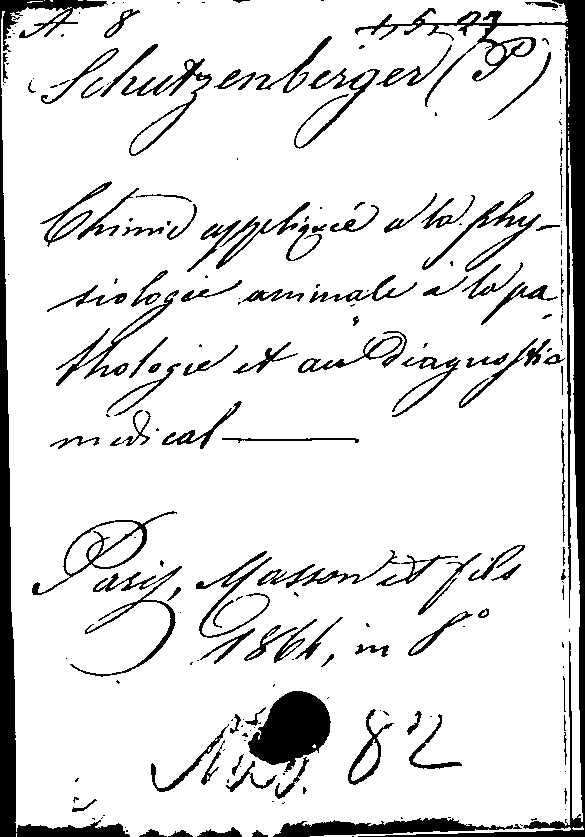 A. 8 4, 5, 27
Schutzenberger (P)
Chimie appliquée a la phy-
siologie animale à la pa-
thologie et au Diagnostic
medical
Paris, Masson et fils
1864, in 8°
82